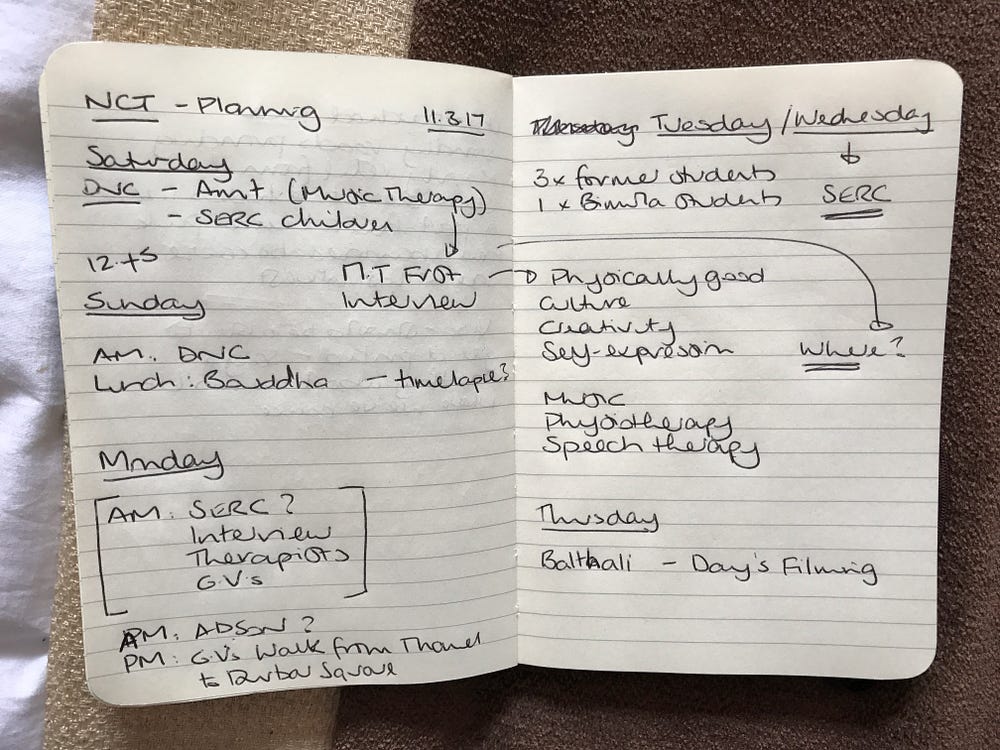 NCT - Planning 11.3.17
Saturday
DNC - Amt (Music Therapy)
- SERC children
12.+s
M.T First
Interview
Sunday
AM: DNC
Lunch: Bouddha - timelapse?
Monday
AM: SERC?
Interview
Therapists
G.V's
PM: ADSON?
PM: G.V's Walk from Thamel
to Durbar Square
Tuesday / Wednesday
3x former students
1 x Bimila students
SERC
Physically good
Culture
Creativity
Self-expression
Where?
Music
Physiotherapy
Speech therapy
Thursday
Balthali - Day's Filming